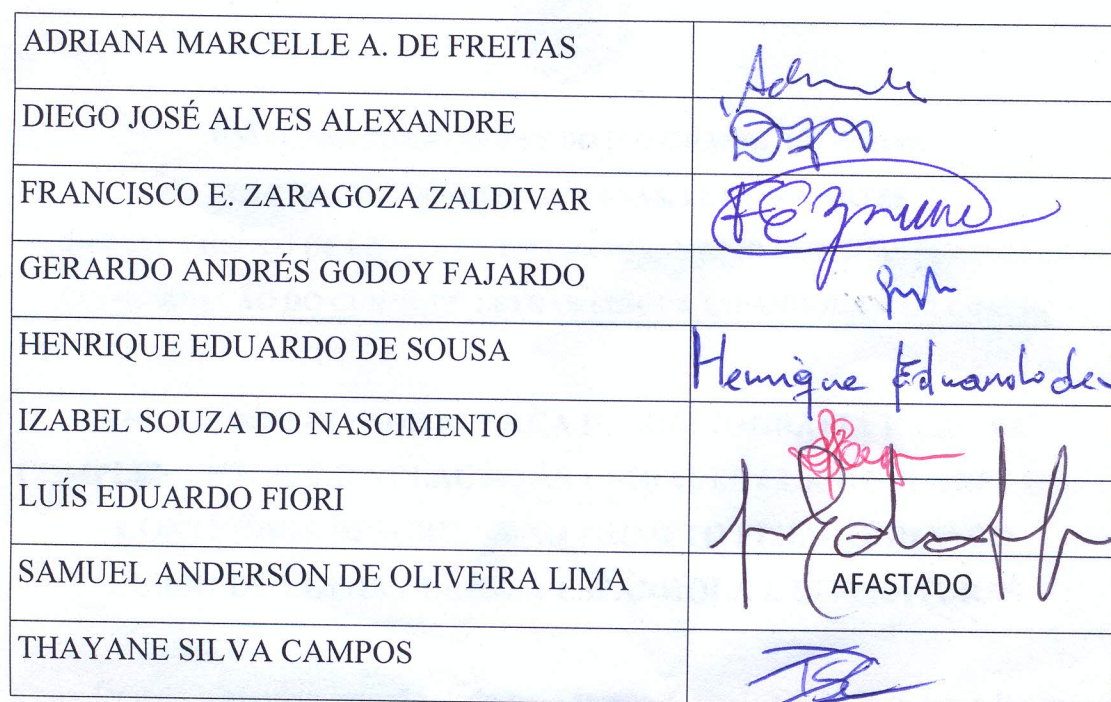 ADRIANA MARCELLE A. DE FREITAS
DIEGO JOSÉ ALVES ALEXANDRE
FRANCISCO E. ZARAGOZA ZALDIVAR
GERARDO ANDRÉS GODOY FAJARDO
HENRIQUE EDUARDO DE SOUSA Henrique Eduardo de
IZABEL SOUZA DO NASCIMENTO
LUÍS EDUARDO FIORI
SAMUEL ANDERSON DE OLIVEIRA LIMA AFASTADO
THAYANE SILVA CAMPOS